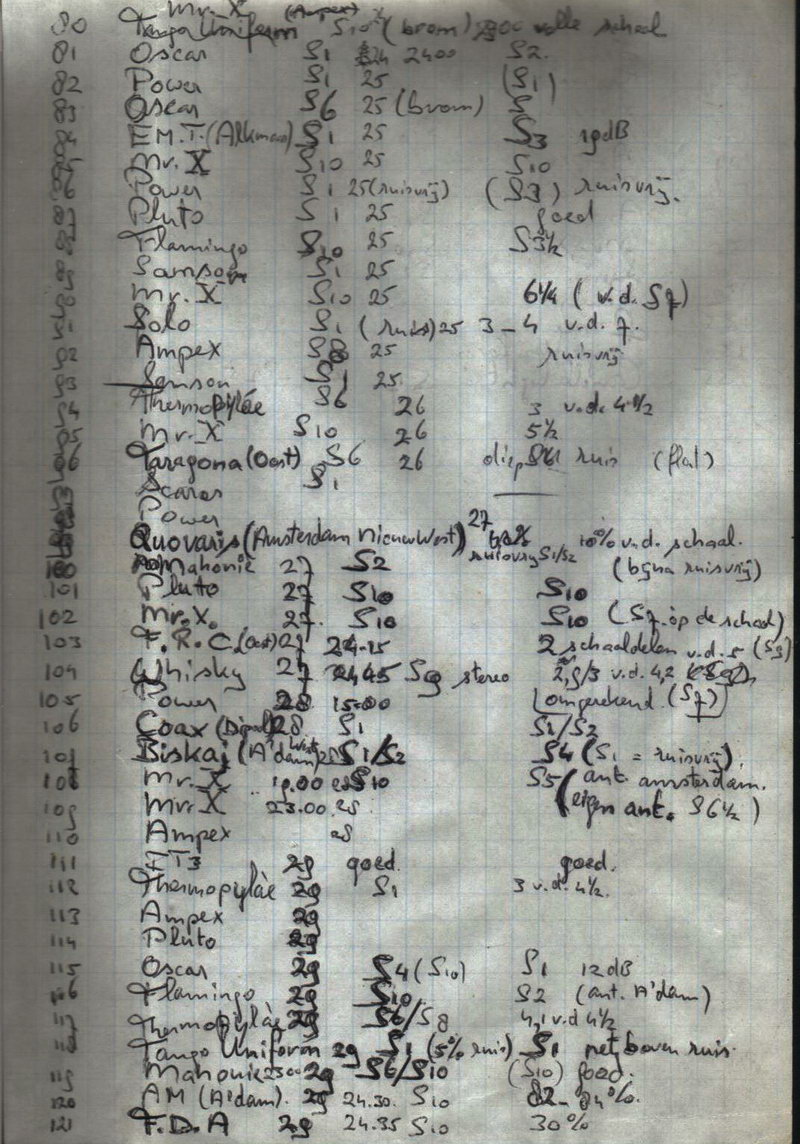 Mr. X (Ampex)
80 Tango Uniform S10 (brom) volle schaal
81 Oscar S1 24 2400 S2.
82 Power S1 25 (S1)
83 Oscar S6 25 (brom) S
84 E.M.T. (Alkmaar) S1 25 S3 19dB
85 Mr. X S10 25 S10
86 Power S1 25 (ruisvrij) (S3) ruisvrij.
87 Pluto S1 25 goed
88 Flamingo S10 25 S3½
89 Samson S1 25
90 Mr. X S10 25 6¼ (v.d. S7)
91 Solo S1 (ruis) 25 3-4 v.d. 7.
92 Ampex S8 25 ruisvrij
93 Samson S1 25
94 Thermopylae S6 26 3 v.d. 4½
95 Mr. X S10 26 5½
96 Taragona (Oost) S6 26 ruis (flat)
S1
Power
Quovaris (Amsterdam Nieuw West) 27 10% v.d. schaal.
100 Mahonie 27 S2 ruisvrij S1/S2 (bijna ruisvrij)
101 Pluto 27 S10 S10
102 Mr. X. 27 S10 S10 (S7 op de schaal)
103 F.R.C. (Oost) 27 24.15 2 schaaldelen v.d. 5 (S9)
104 Whisky 27 2445 S9 stereo v.d. 4,2
105 Power 28 15.00 omgerekend (S7)
106 Coax 28 S1 S1/S2
107 Biskaj (A'dam West) 28 S1/S2 S4 (S1 = ruisvrij)
108 Mr. X 19.00 28 S10 S5 (ant. amsterdam.
109 Mr. X 23.00 28 (eigen ant. S6½)
110 Ampex 28
111 29 goed. goed.
112 Thermopylae 29 S1 3 v.d. 4½.
113 Ampex 29
114 Pluto 29
115 Oscar 29 S4 (S10) S1 12dB
116 Flamingo 29 S10 S2 (ant. A'dam)
117 Thermopylae 29 S6/S8 4,1 v.d 4½
118 Tango Uniform 29 S1 (5% ruis) S1 net boven ruis.
119 Mahonie 2300 29 S6/S10 (S10) goed.
120 AM (A'dam). 29 24.30. S10 82-84%.
121 F.D.A 29 24.35 S10 30%